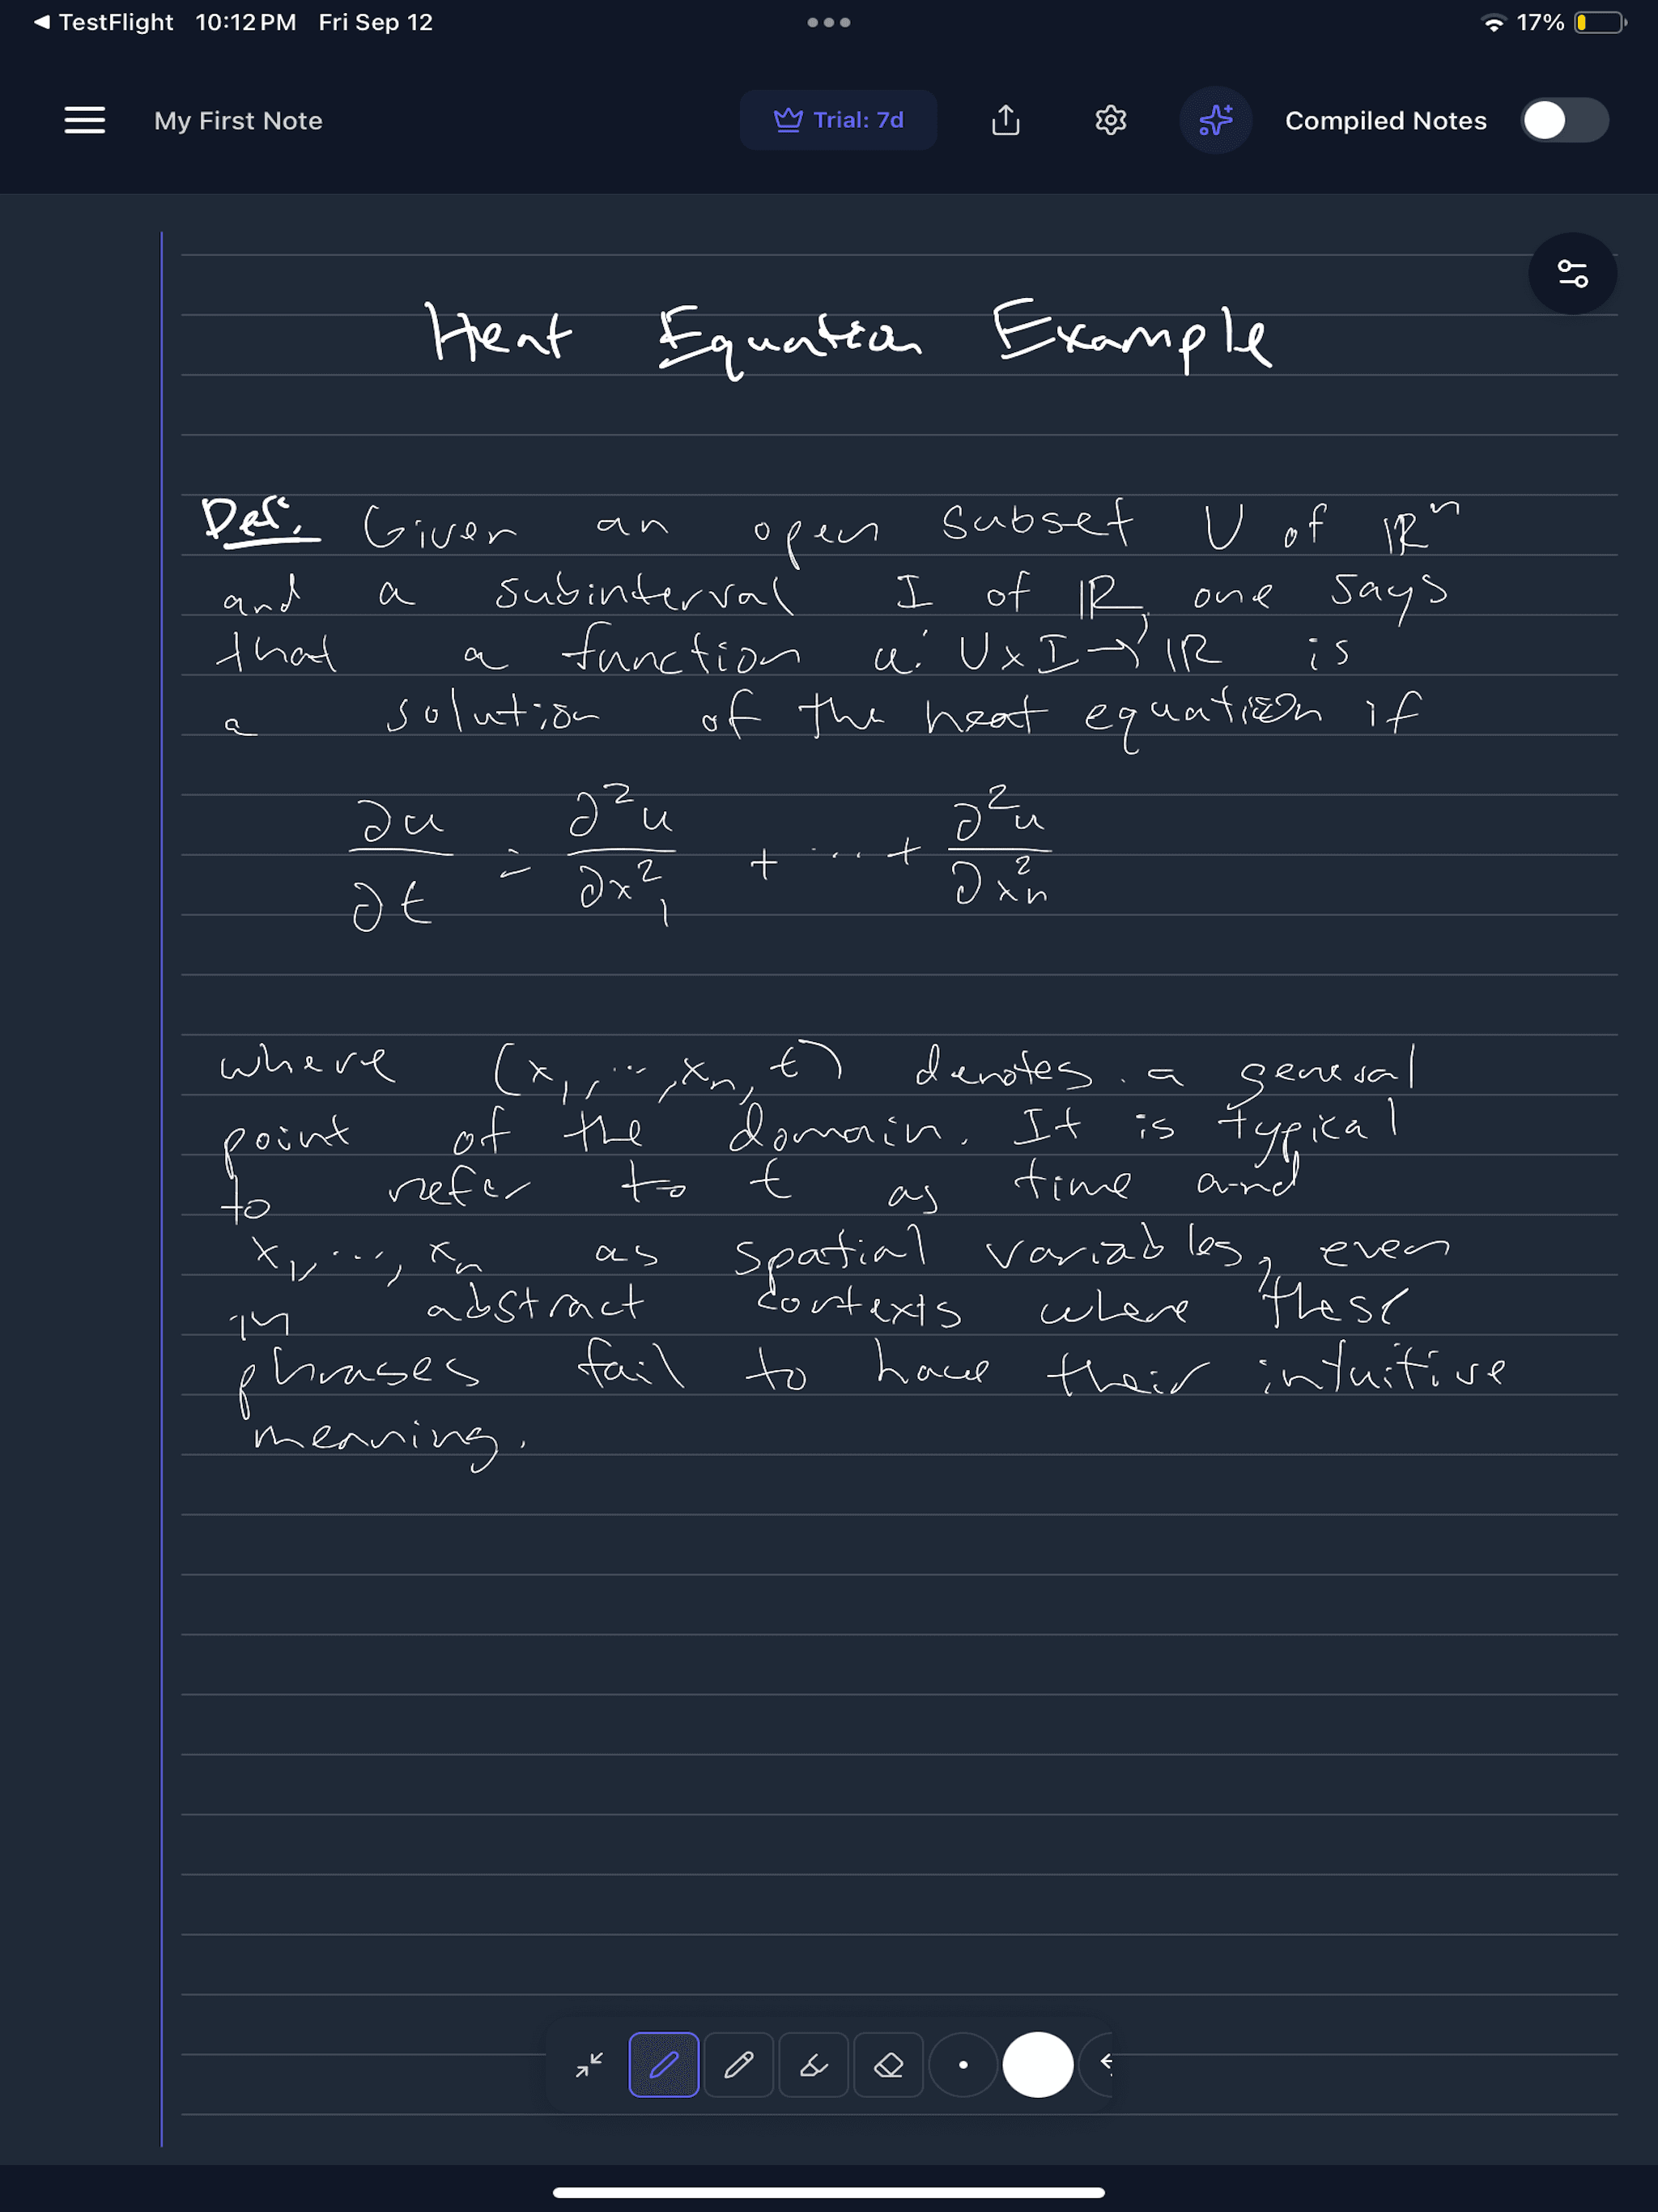 TestFlight 10:12 PM Fri Sep 12 17%
My First Note Trial: 7d Compiled Notes
Heat Equation Example
Def. Given an open subset U of ℝⁿ
and a subinterval I of ℝ, one says
that a function u: U×I→ℝ is
a solution of the heat equation if
∂u/∂t = ∂²u/∂x₁² + ... + ∂²u/∂xₙ²
where (x₁, ..., xₙ, t) denotes a general
point of the domain. It is typical
to refer to t as time and
x₁, ..., xₙ as spatial variables, even
in abstract contexts where these
phrases fail to have their intuitive
meaning.